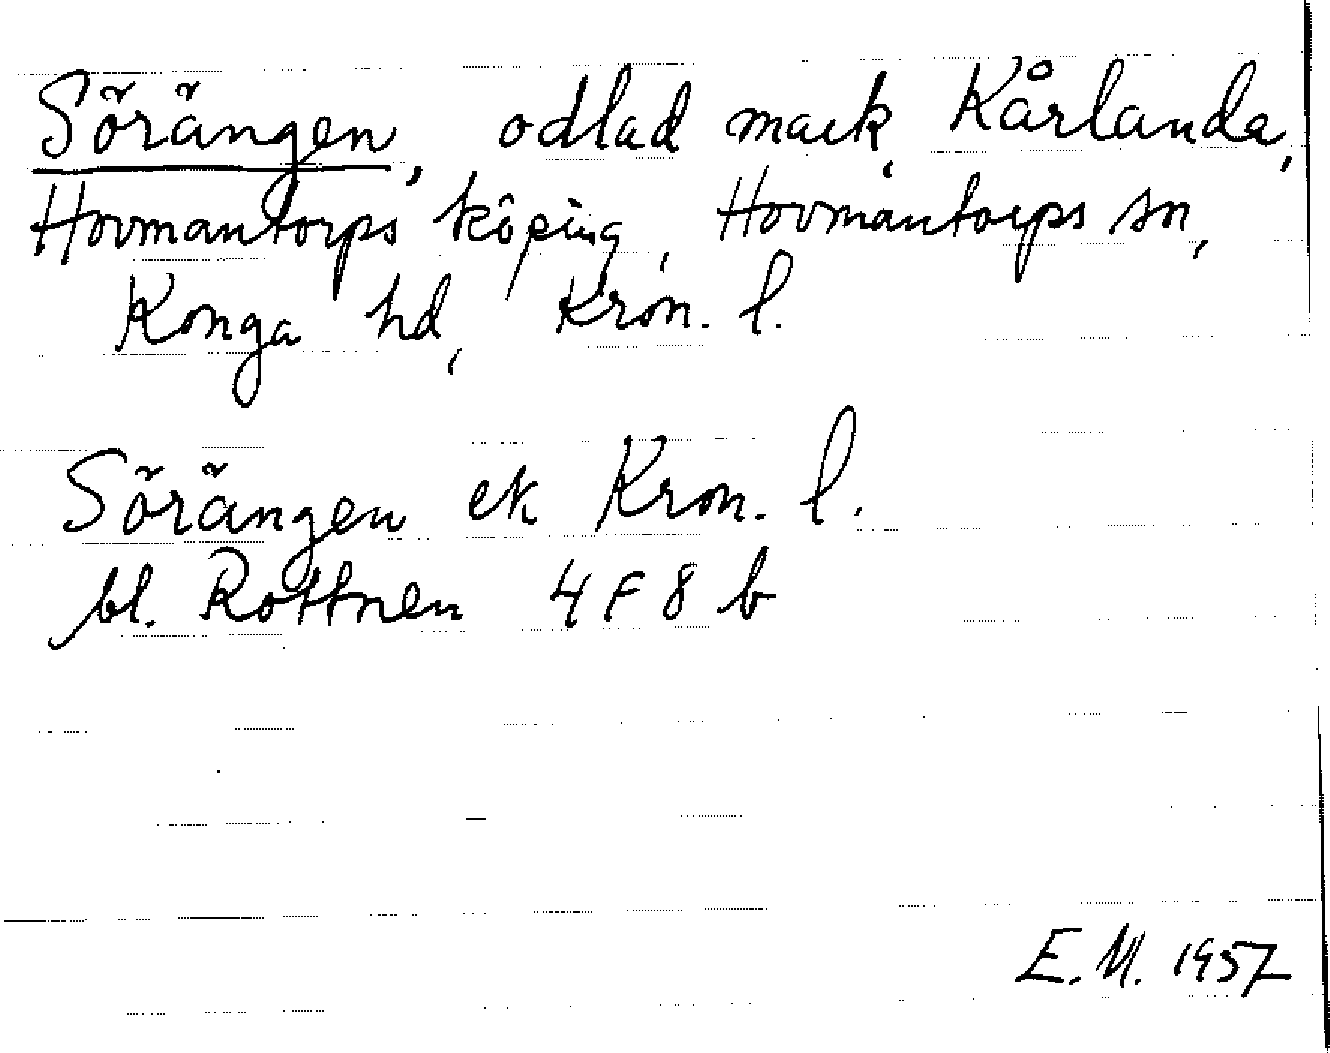 Sörängen, odlad mark, Kårlanda,
Hovmantorps köping, Hovmantorps sn,
Konga hd, Kron. l.
Sörängen ek Kron. l.
bl. Rottnen 4 F 8 b
E. M. 1957